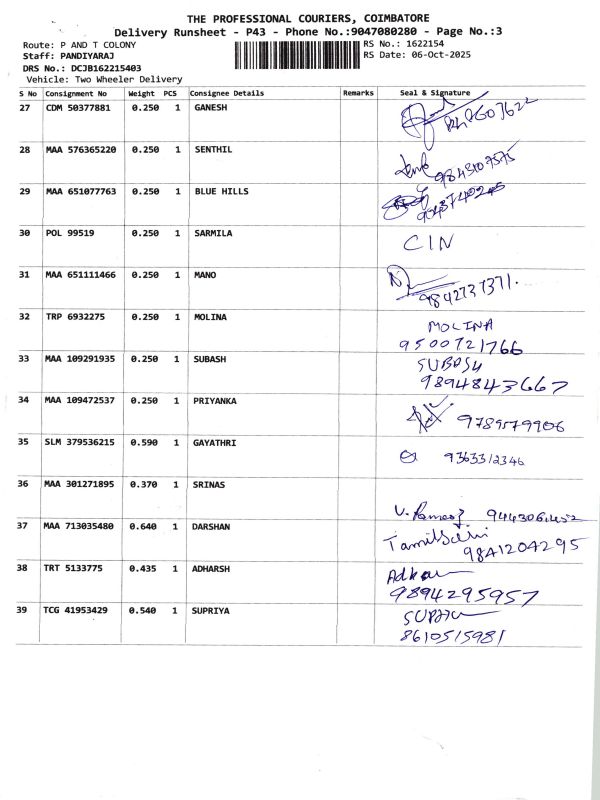 THE PROFESSIONAL COURIERS, COIMBATORE
Delivery Runsheet - P43 - Phone No.:9047080280 - Page No.:3
Route: P AND T COLONY
Staff: PANDIYARAJ
DRS No.: DCJB162215403
Vehicle: Two Wheeler Delivery
RS No.: 1622154
RS Date: 06-Oct-2025
S No Consignment No Weight PCS Consignee Details Remarks Seal & Signature
27 CDM 50377881 0.250 1 GANESH
28 MAA 576365220 0.250 1 SENTHIL
9843107575
29 MAA 651077763 0.250 1 BLUE HILLS
30 POL 99519 0.250 1 SARMILA
CIN
31 MAA 651111466 0.250 1 MANO
9842737371.
32 TRP 6932275 0.250 1 MOLINA
MOLINA
9500721766
33 MAA 109291935 0.250 1 SUBASH
SUBASH
9894843667
34 MAA 109472537 0.250 1 PRIYANKA
9789579906
35 SLM 379536215 0.590 1 GAYATHRI
9363312346
36 MAA 301271895 0.370 1 SRINAS
37 MAA 713035480 0.640 1 DARSHAN
9841204295
38 TRT 5133775 0.435 1 ADHARSH
9894295957
39 TCG 41953429 0.540 1 SUPRIYA
8610515981